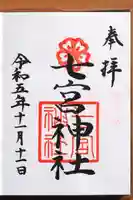 奉拝
七宮神社
令和五年十一月十一日